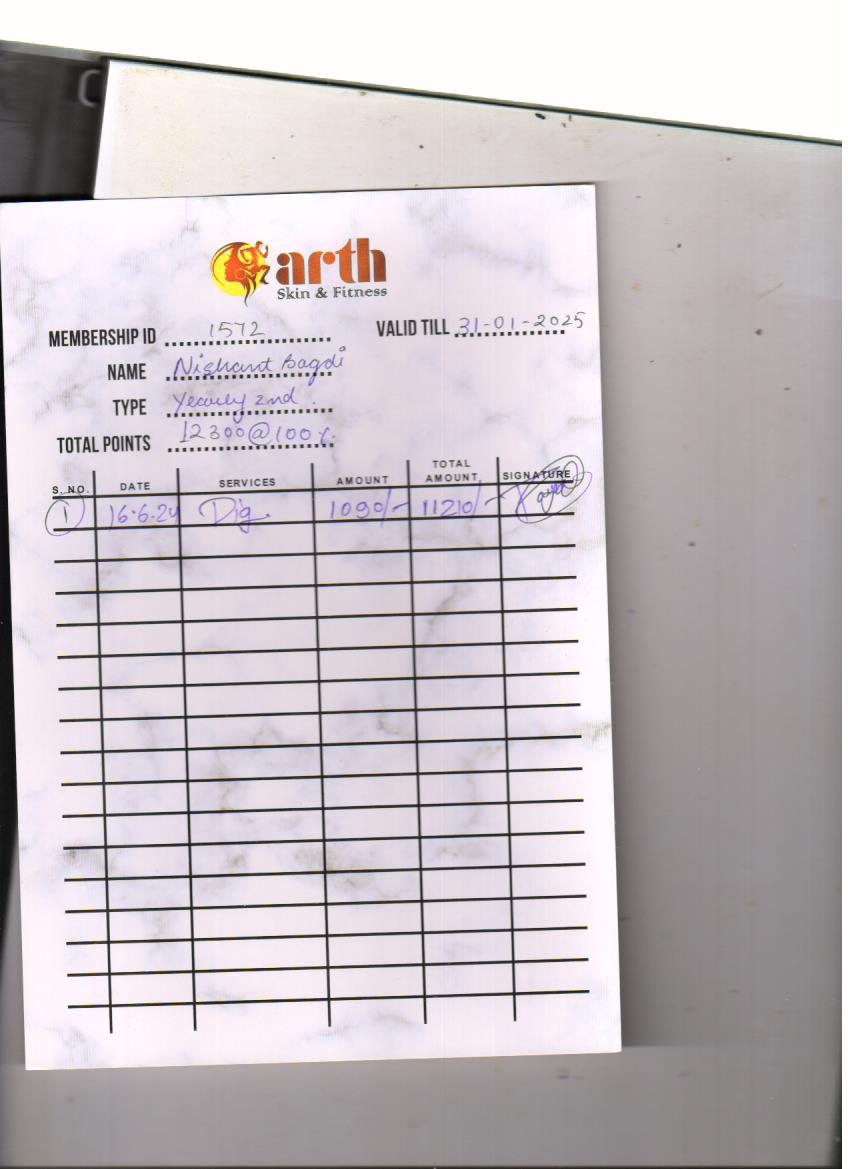 arth
Skin & Fitness
MEMBERSHIP ID 1572 VALID TILL 31-01-2025
NAME Nishant Bagdi
TYPE Yearly 2nd.
TOTAL POINTS 12300@100%
S. NO. DATE SERVICES AMOUNT TOTAL AMOUNT SIGNATURE
1 16.6.24 Dig. 1090/- 11210/-